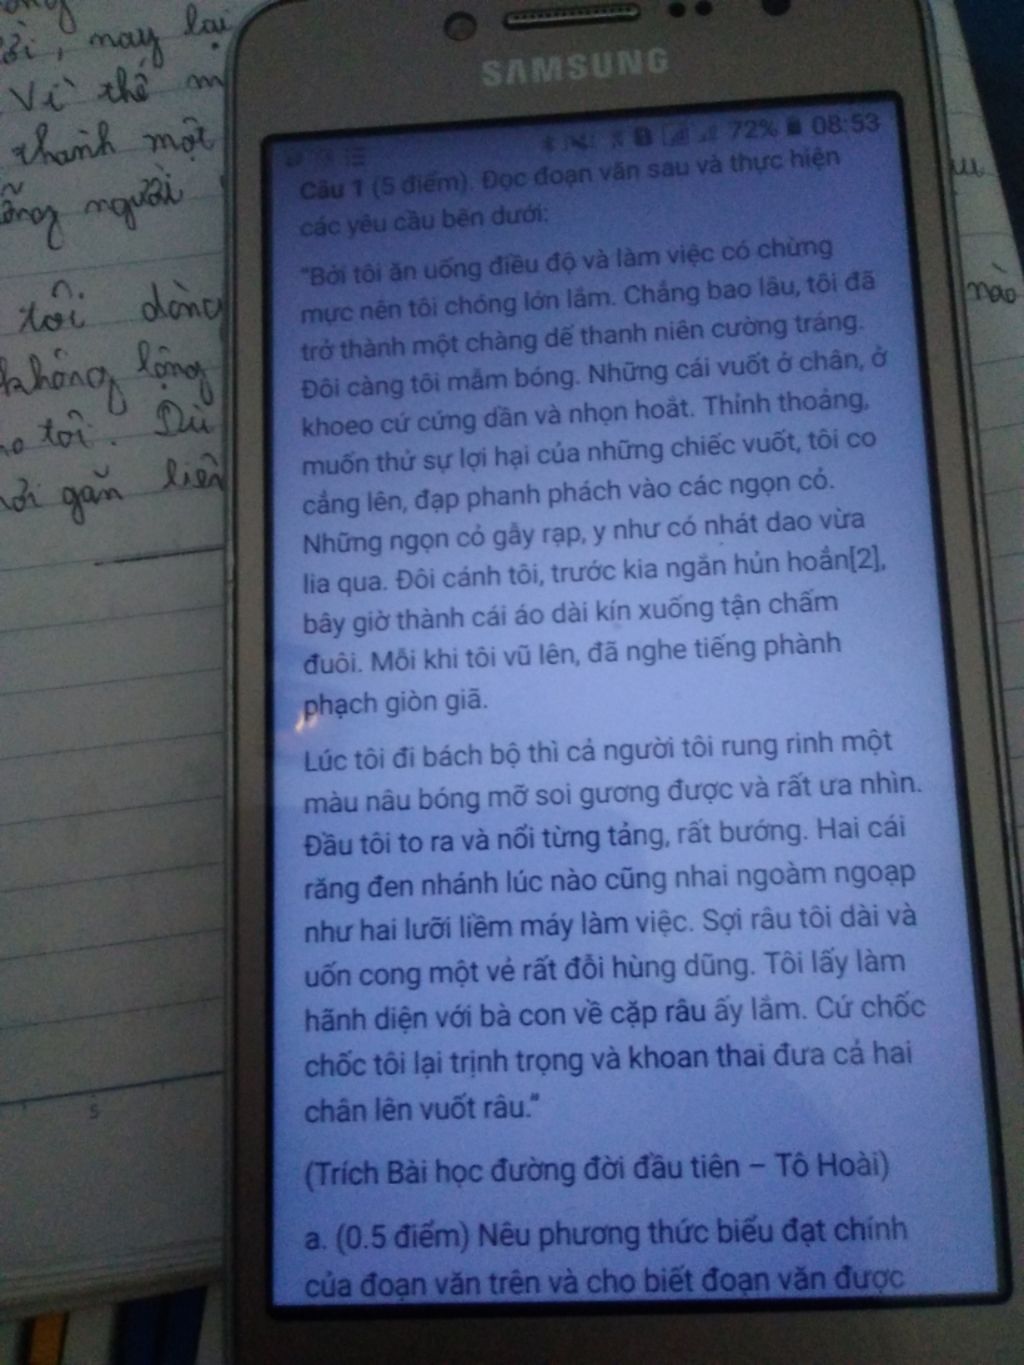 may lại
Vì thế m
thành một
người
tôi dòng
không lộng
tôi. Dù
gắn liền
nào
5
SAMSUNG
72% 08:53
Câu 1 (5 điểm). Đọc đoạn văn sau và thực hiện
các yêu cầu bên dưới:
"Bởi tôi ăn uống điều độ và làm việc có chừng
mực nên tôi chóng lớn lắm. Chẳng bao lâu, tôi đã
trở thành một chàng dế thanh niên cường tráng.
Đôi càng tôi mẫm bóng. Những cái vuốt ở chân, ở
khoeo cứ cứng dần và nhọn hoắt. Thỉnh thoảng,
muốn thử sự lợi hại của những chiếc vuốt, tôi co
cẳng lên, đạp phanh phách vào các ngọn cỏ.
Những ngọn cỏ gẫy rạp, y như có nhát dao vừa
lia qua. Đôi cánh tôi, trước kia ngắn hủn hoẳn[2],
bây giờ thành cái áo dài kín xuống tận chấm
đuôi. Mỗi khi tôi vũ lên, đã nghe tiếng phành
phạch giòn giã.
Lúc tôi đi bách bộ thì cả người tôi rung rinh một
màu nâu bóng mỡ soi gương được và rất ưa nhìn.
Đầu tôi to ra và nổi từng tảng, rất bướng. Hai cái
răng đen nhánh lúc nào cũng nhai ngoàm ngoạp
như hai lưỡi liềm máy làm việc. Sợi râu tôi dài và
uốn cong một vẻ rất đỗi hùng dũng. Tôi lấy làm
hãnh diện với bà con về cặp râu ấy lắm. Cứ chốc
chốc tôi lại trịnh trọng và khoan thai đưa cả hai
chân lên vuốt râu."
(Trích Bài học đường đời đầu tiên – Tô Hoài)
a. (0.5 điểm) Nêu phương thức biểu đạt chính
của đoạn văn trên và cho biết đoạn văn được